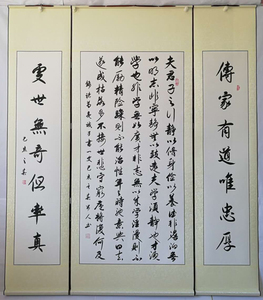 傳家有道唯忠厚
夫君子之行靜以修身儉以養德非澹泊無
以明志非寧靜無以致遠夫學須靜也才須
學也非學無以廣才非志無以成學淫漫則不
能勵精險躁則不能治性年與時馳意與日去
遂成枯落多不接世悲守窮廬將復何及
諸葛亮誡子書一文己亥之春
處世無奇但率真
己亥之春